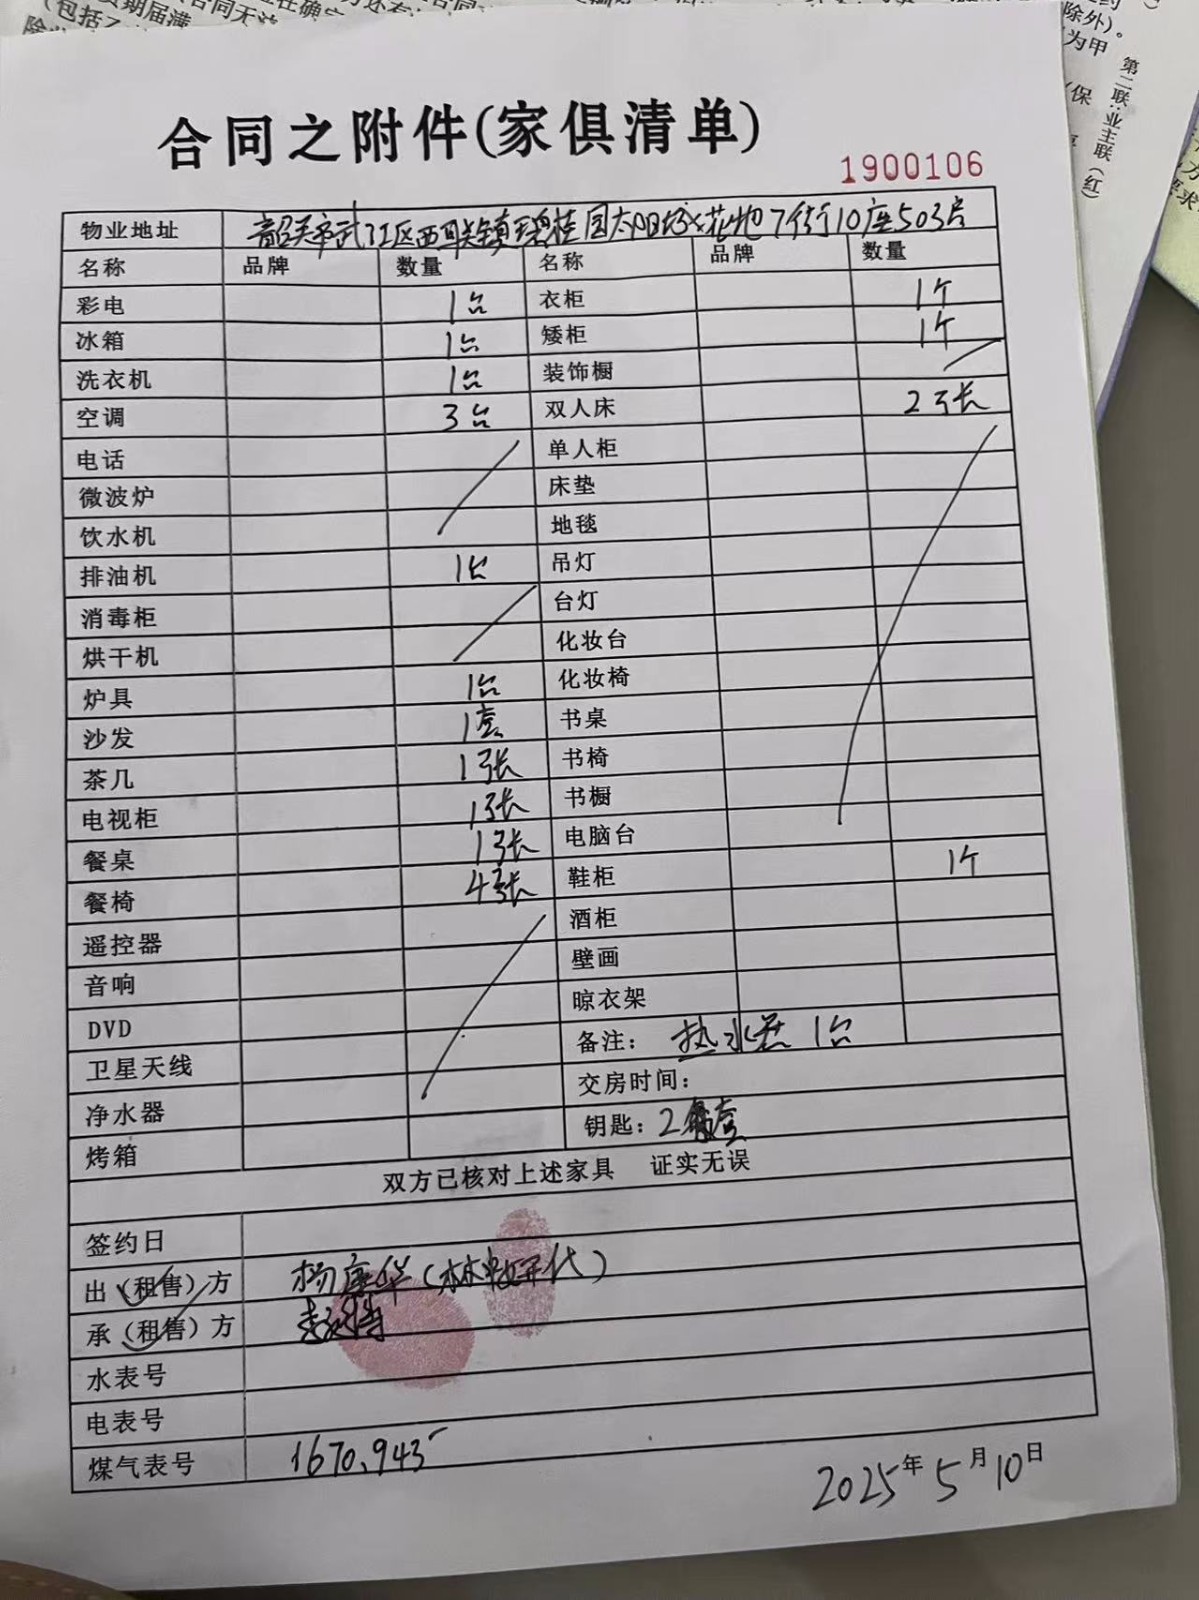 合同之附件(家俱清单)
1900106
物业地址 韶关市武江区西联镇碧桂园太阳城花地7街10座503房
名称 品牌 数量 名称 品牌 数量
彩电 1台 衣柜 1个
冰箱 1台 矮柜 1个
洗衣机 1台 装饰橱
空调 3台 双人床 2张
电话 单人柜
微波炉 床垫
饮水机 地毯
排油机 1台 吊灯
消毒柜 台灯
烘干机 化妆台
炉具 1台 化妆椅
沙发 1套 书桌
茶几 1张 书椅
电视柜 1张 书橱
餐桌 1张 电脑台
餐椅 4张 鞋柜 1个
遥控器 酒柜
音响 壁画
DVD 晾衣架
卫星天线 备注: 热水器 1台
净水器 交房时间:
烤箱 钥匙: 2套
双方已核对上述家具 证实无误
签约日
出(租售)方 杨康华(林 代)
承(租售)方
水表号
电表号
煤气表号 1670.943
2025年5月10日
第二联:业主联(红)
除外)。
为甲
(保